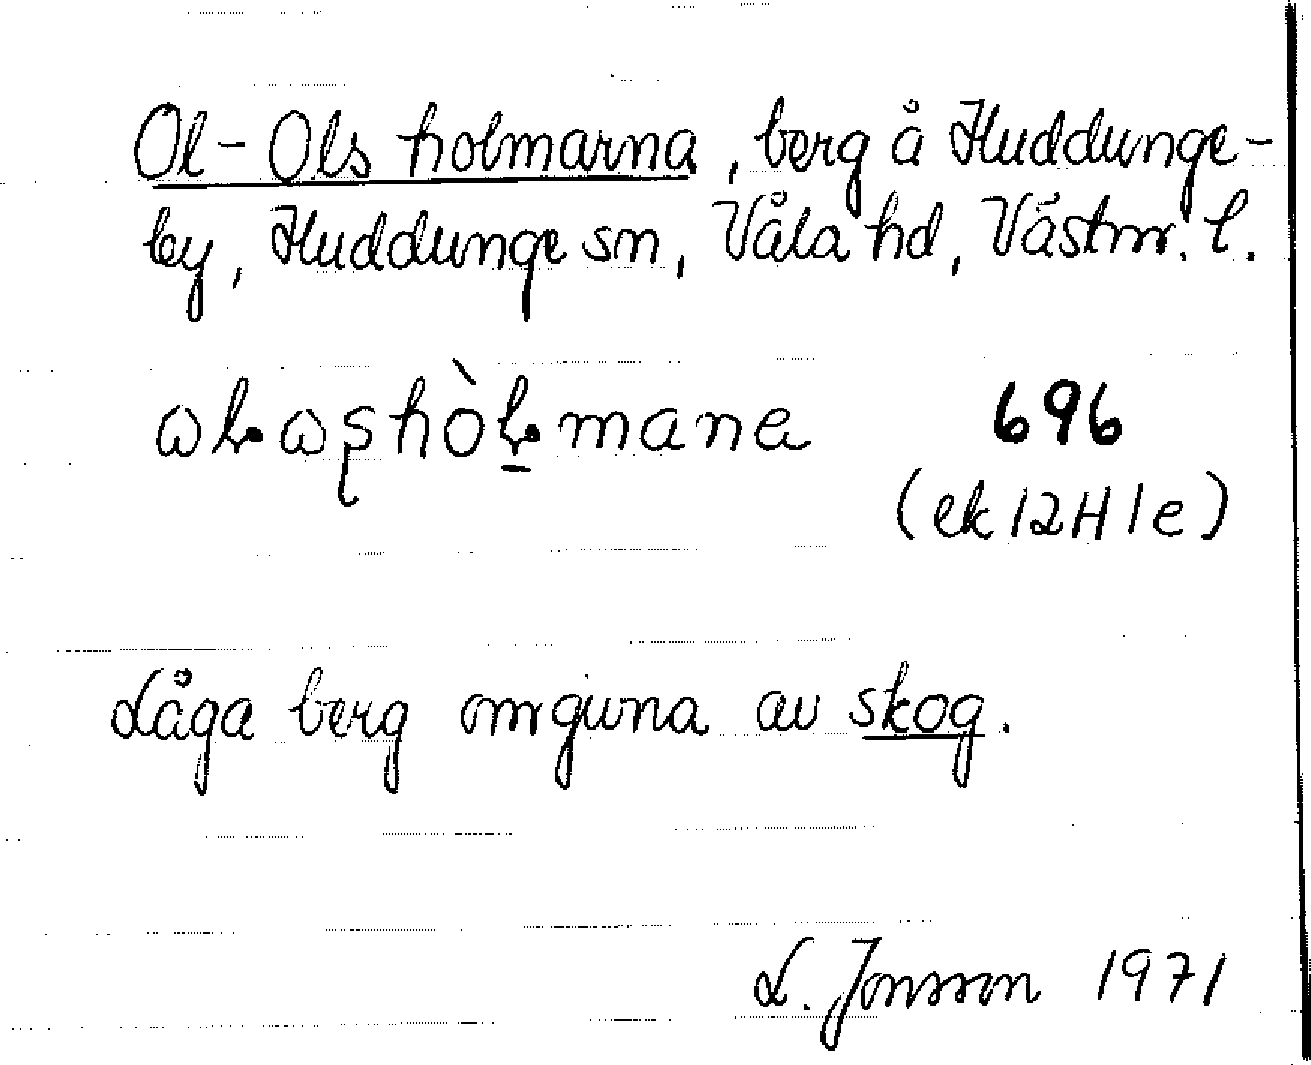 Ol-Ols holmarna, berg å Huddunge-
by, Huddunge sn, Våla hd, Västm. l.
696
(ek 12H1e)
Låga berg omgivna av skog.
L. Jonsson 1971